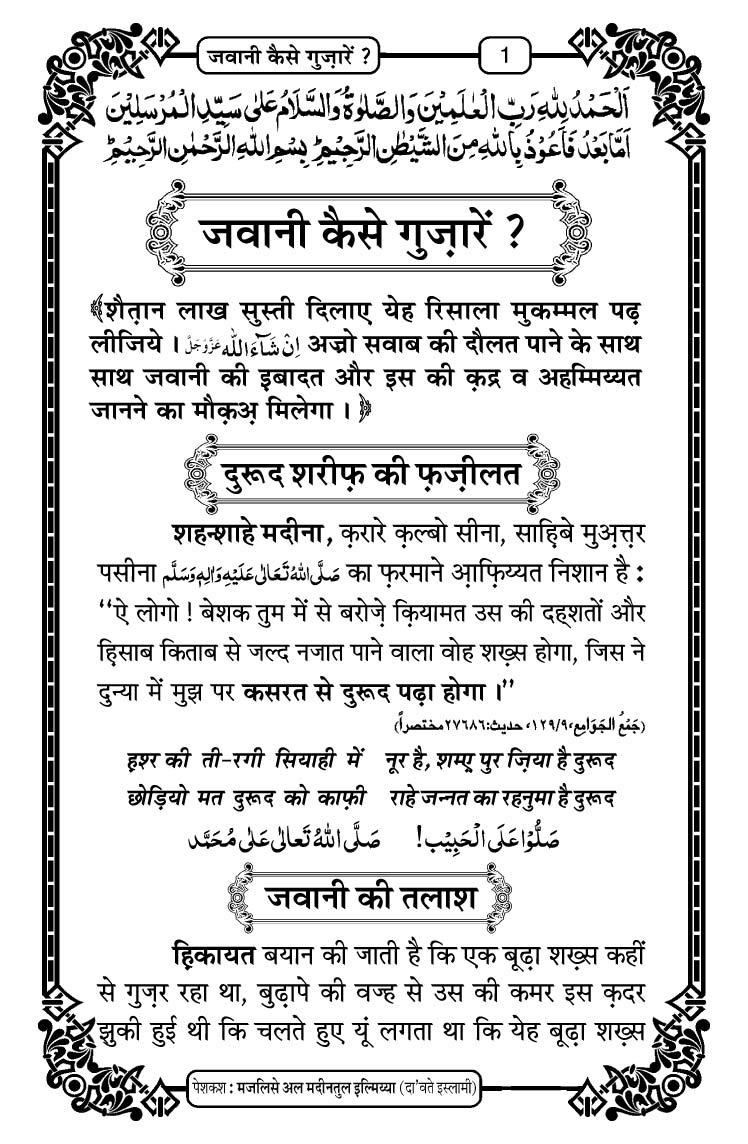 जवानी कैसे गुज़ारें ?
1
اَلْحَمْدُ لِلّٰهِ رَبِّ الْعٰلَمِيْنَ وَالصَّلٰوةُ وَالسَّلَامُ عَلٰى سَيِّدِ الْمُرْسَلِيْنَ
اَمَّا بَعْدُ فَاَعُوْذُ بِاللّٰهِ مِنَ الشَّيْطٰنِ الرَّجِيْمِ ؕ بِسْمِ اللّٰهِ الرَّحْمٰنِ الرَّحِيْمِ ؕ
जवानी कैसे गुज़ारें ?
﴾शैत़ान लाख सुस्ती दिलाए येह रिसाला मुकम्मल पढ़
लीजिये । اِنْ شَآءَ اللّٰه عَزَّوَجَلَّ अज्रो सवाब की दौलत पाने के साथ
साथ जवानी की इबादत और इस की क़द्र व अहम्मिय्यत
जानने का मौक़अ़ मिलेगा । ﴿
दुरूद शरीफ़ की फ़ज़ीलत
शहन्शाहे मदीना, क़रारे क़ल्बो सीना, साह़िबे मुअ़त़्त़र
पसीना صَلَّى اللّٰهُ تَعَالٰى عَلَيْهِ وَاٰلِهٖ وَسَلَّم का फ़रमाने आ़फ़िय्यत निशान है :
‘‘ऐ लोगो ! बेशक तुम में से बरोज़े क़ियामत उस की दह्शतों और
ह़िसाब किताब से जल्द नजात पाने वाला वोह शख़्स होगा, जिस ने
दुन्या में मुझ पर कसरत से दुरूद पढ़ा होगा ।’’
(جَمْعُ الجَوَامِع، ١٢٩/٩، حدیث: ٢٧٦٨٦ مختصراً)
ह़श्र की ती-रगी सियाही में नूर है, शम्ए़ पुर ज़िया है दुरूद
छोड़ियो मत दुरूद को काफ़ी राहे जन्नत का रहनुमा है दुरूद
صَلُّوْا عَلَى الْحَبِيْب! صَلَّى اللّٰهُ تَعَالٰى عَلٰى مُحَمَّد
जवानी की तलाश
ह़िकायत बयान की जाती है कि एक बूढ़ा शख़्स कहीं
से गुज़र रहा था, बुढ़ापे की वज्ह से उस की कमर इस क़दर
झुकी हुई थी कि चलते हुए यूं लगता था कि येह बूढ़ा शख़्स
पेशकश : मजलिसे अल मदीनतुल इल्मिय्या (दा'वते इस्लामी)